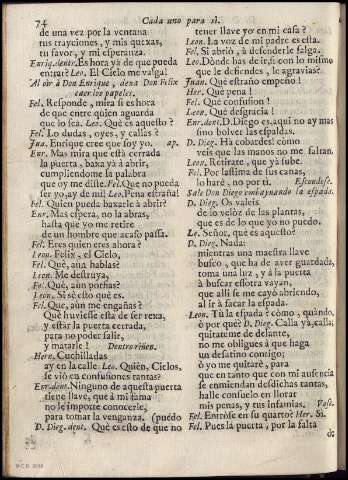 74
Cada uno para sì.
de una vez por la ventana
tus trayciones, y mis quexas,
tu favor, y mi esperanza.
Enriq. dentr. Es hora yà de que pueda
entrar? Leo. El Cielo me valga!
Al oìr à Don Enrique, dexa Don Felix
caer los papeles.
Fel. Responde, mira si es hora
de que entre quien aguarda
que lo sea. Leo. Què es aquesto?
Fel. Lo dudas, oyes, y callas?
Jua. Enrique cree que soy yo. ap.
Enr. Mas mira que està cerrada
la puerta, baxa yà à abrir,
cumpliendome la palabra
que oy me diste. Fel. Que no pueda
ser yo, ay de mi! Leo. Pena estraña!
Fel. Quien pueda baxarle à abrir?
Enr. Mas espera, no la abras,
hasta que yo me retire
de un hombre que acaso passa.
Fel. Eres quien eres ahora?
Leon. Felix, el Cielo,
Fel. Què, aùn hablas?
Leon. Me destruya,
Fel. Què, aùn porfias?
Leon. Si sè esto què es.
Fel. Què, aùn me engañas?
Que huviesse esta de ser rexa,
y estàr la puerta cerrada,
para no poder salir,
y matarle! Dentro riñen.
Hern. Cuchilladas
ay en la calle. Leo. Quièn, Cielos,
se viò en confusiones tantas?
Enr. dent. Ninguno de aquesta puerta
tiene llave, que à mi fama
no le importe conocerle,
para tomar la venganza. (puedo
D. Dieg. dent. Què es esto de que no
tener llave yo en mi casa?
Leon. La voz de mi padre es esta.
Fel. Si abriò, à defenderle salga.
Leo. Dònde has de ir, si con lo mismo
que le defiendes, le agravias?
Juan. Què estraño empeño!
Her. Què pena!
Fel. Què confusion!
Leon. Què desgracia!
Enr. dent. D. Diego es, aqui no ay mas
sino bolver las espaldas.
D. Dieg. Ha cobardes! como
veis que las manos no me faltan.
Leon. Retirate, que yà sube.
Fel. Por lastima de sus canas,
lo harè, no por ti. Escondese.
Sale Don Diego embaynando la espada.
D. Dieg. Os valeis
de lo velòz de las plantas,
que es de lo que yo no puedo.
Le. Señor, què es aquesto?
D. Dieg. Nada:
mientras una maestra llave
busco, que ha de aver guardada,
toma una luz, y à la puerta
à buscar essotra vayan,
que allì se me cayò abriendo,
al ir à sacar la espada.
Leon. Tù la espada? còmo, quàndo,
ò por què? D. Dieg. Calla yà, calla;
quitateme de delante,
no me obligues à que haga
un desatino contigo;
ò yo me quitarè, para
que en tanto que con mi ausencia
se enmiendan desdichas tantas,
halle consuelo en llorar
mis penas, y tus infamias. Vase.
Fel. Entròse en su quarto? Her. Si.
Fel. Pues la puerta, por la falta
de